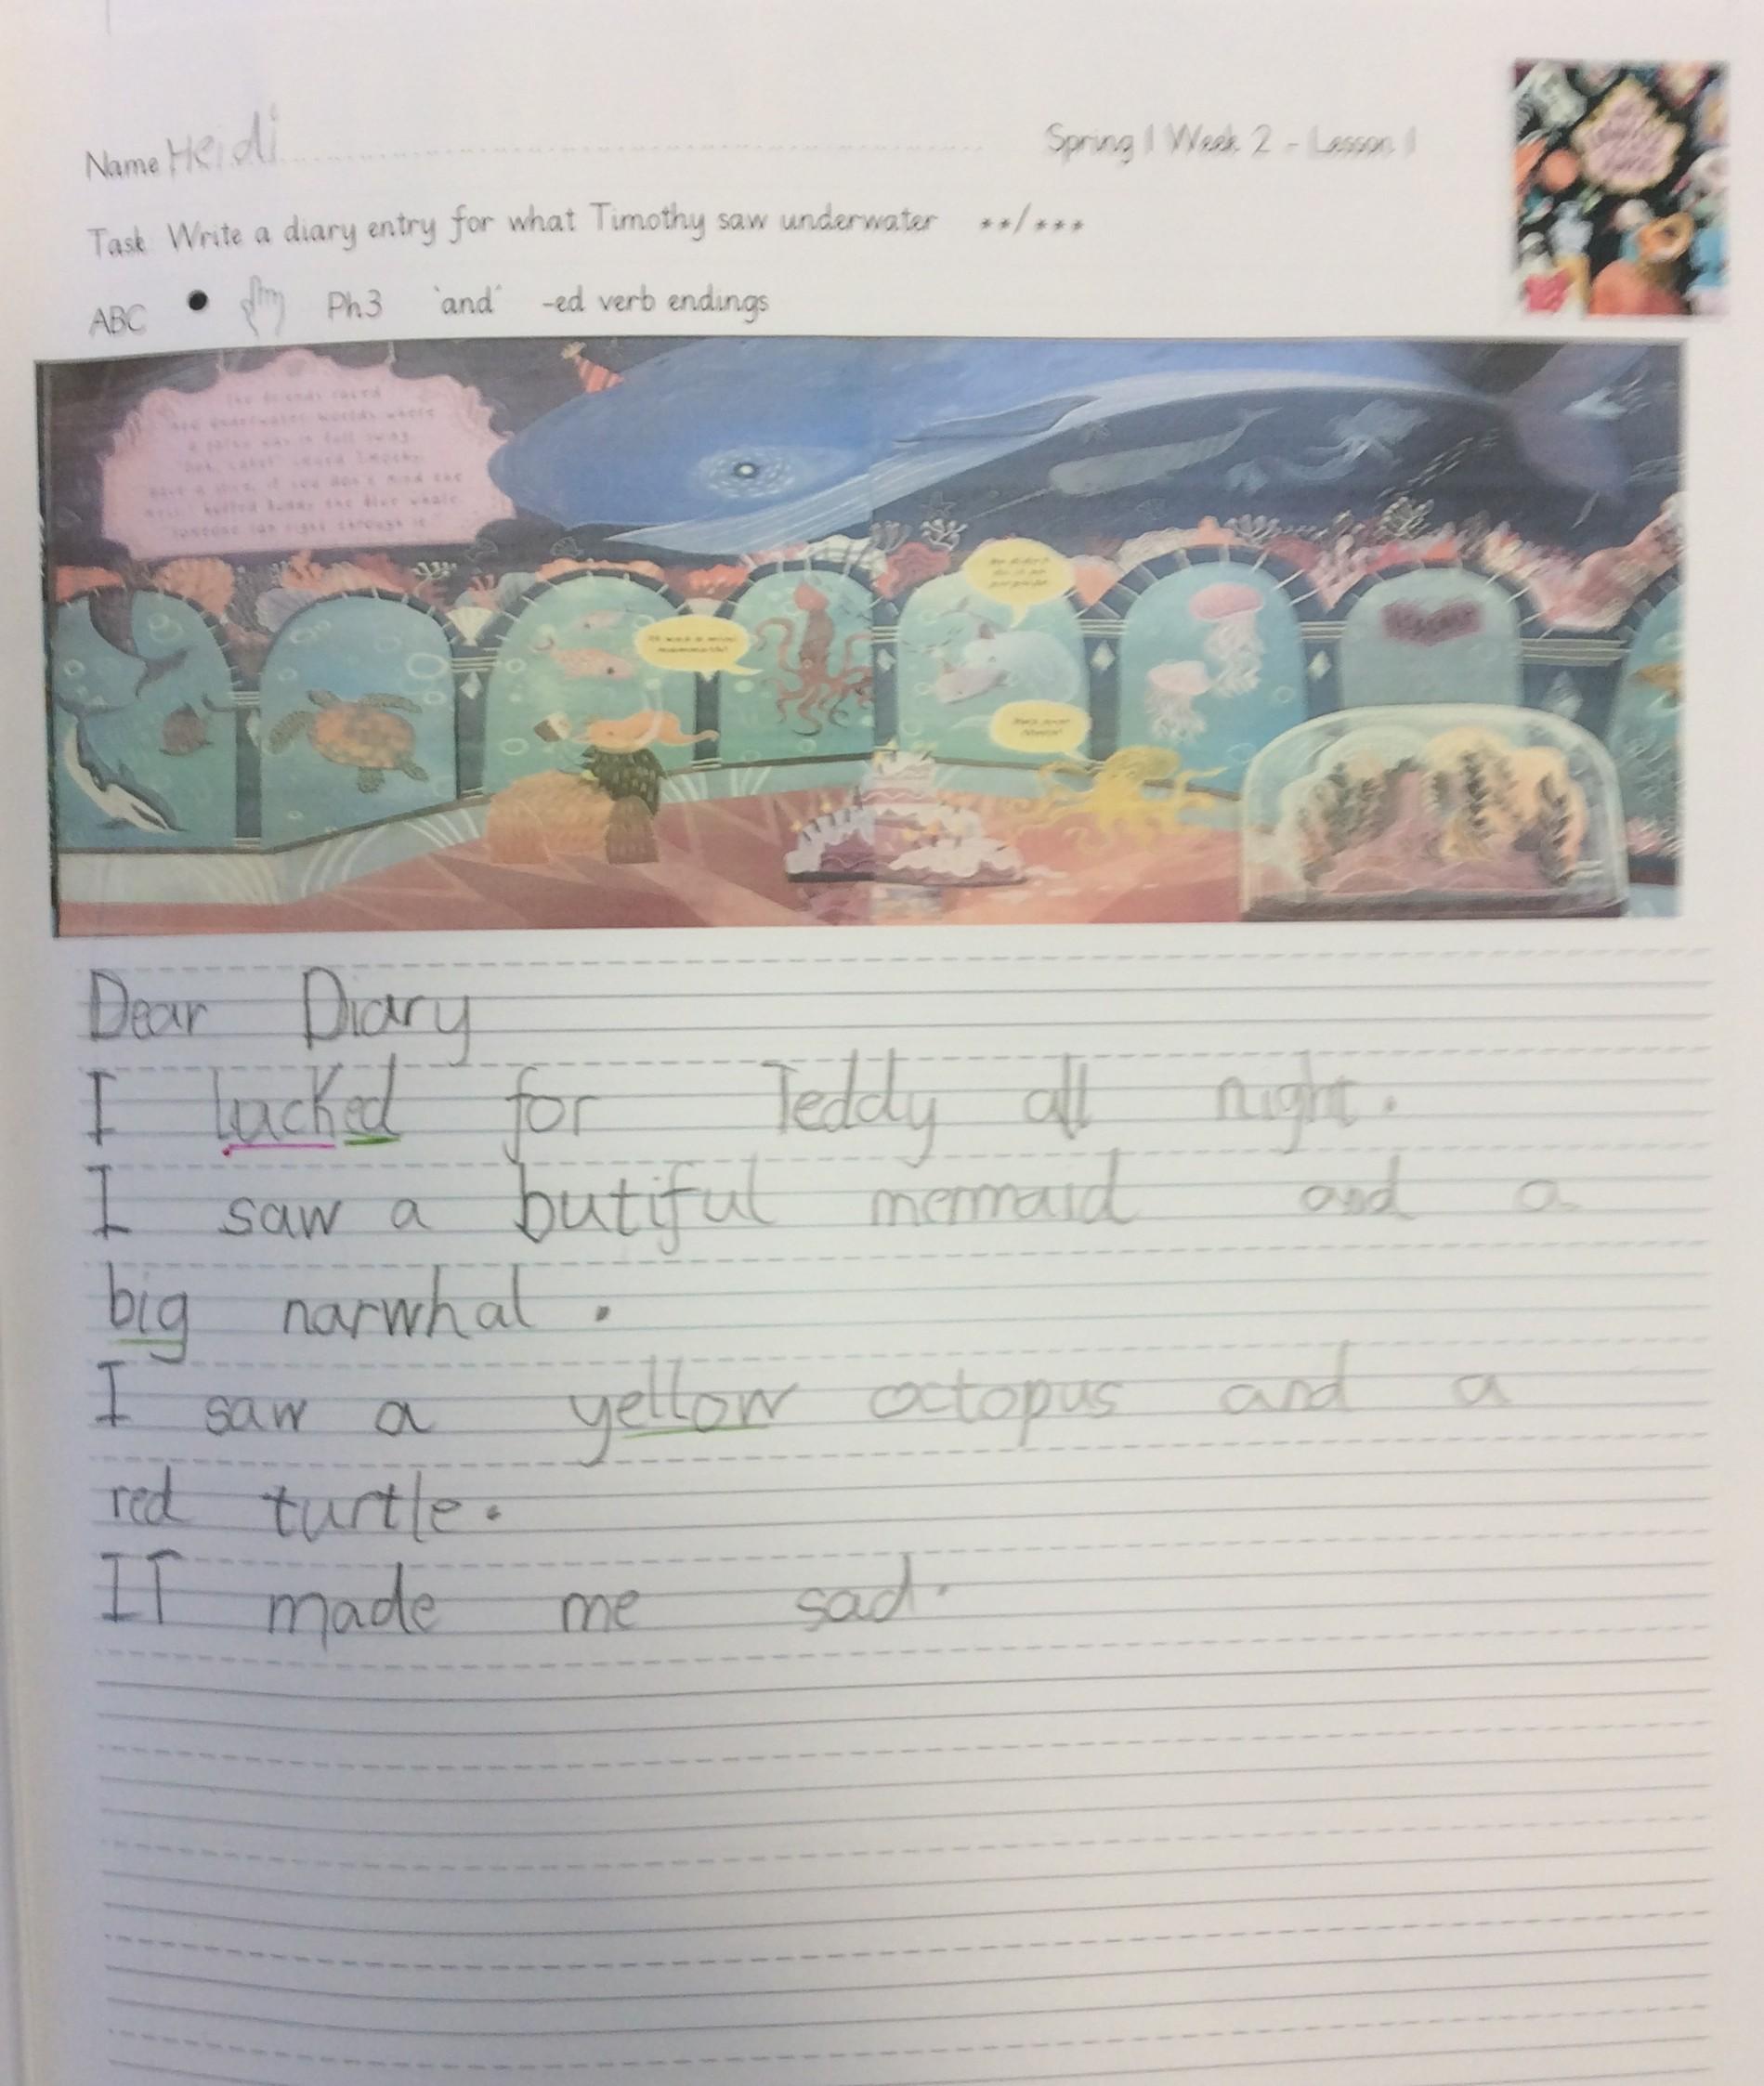 Name Heidi
Spring 1 Week 2 - Lesson 1
Task Write a diary entry for what Timothy saw underwater **/***
ABC Ph3 'and' -ed verb endings
Dear Diary
I lucked for Teddy all night.
I saw a butiful mermaid and a
big narwhal .
I saw a yellow octopus and a
red turtle.
IT made me sad.